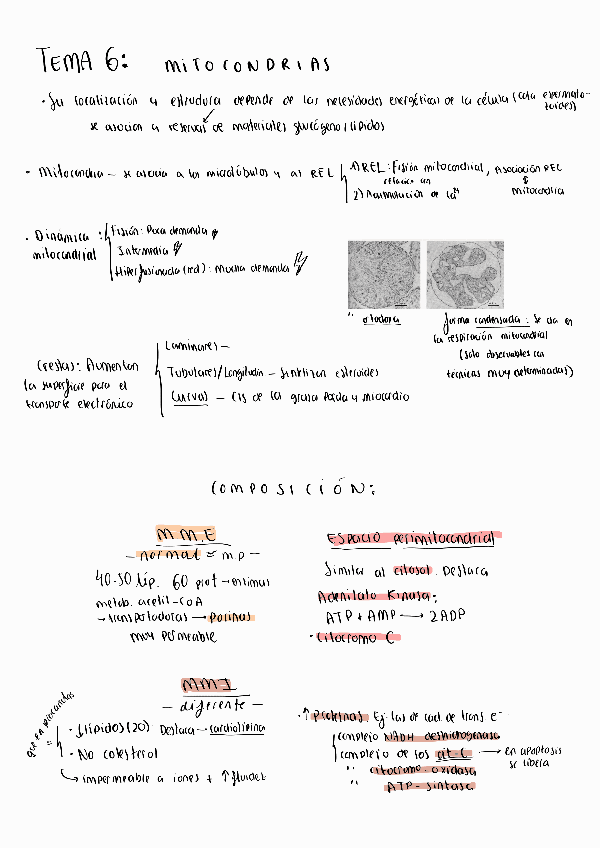 TEMA 6: MITOCONDRIAS
· Su localización y estructura depende de las necesidades energéticas de la célula (cola espermato-
toides)
se asocian a reservas de materiales glucógeno/lípidos
- Mitocondria — se asocia a los microtúbulos y al REL
1) REL: Fisión mitocondrial, Asociación REL
relación con
mitocondria
2) Asimilación de Ca
· Dinámica mitocondrial:
Fisión: Poca demanda
Intermedia
Hiperfusionada (red): mucha demanda
" ortodoxa
forma condensada: Se da en
la respiración mitocondrial
(solo observables con
técnicas muy determinadas)
Crestas: Aumentan
la superficie para el
transporte electrónico
Laminares —
Tubulares/Longitudin — sintetizan esteroides
Curvas — Cls de la grasa parda y miocardio
COMPOSICIÓN:
M M.E
— normal ≈ m.p —
40-50 líp. 60 prot → enzimas
metab. acetil-CoA
→ transportadoras → porinas
muy permeable
ESPACIO perimitocondrial
Similar al citosol. Destaca
Adenilato Kinasa:
ATP + AMP → 2ADP
· Citocromo C
MMI
— diferente —
que en procariotas
=
· ↓lípidos (20) Destaca — cardiolipina
· No colesterol
↳ impermeable a iones + ↑fluidez
· ↑ proteínas. Ej: las de cad. de trans e⁻
complejo NADH deshidrogenasa
complejo de los cit-C → en apoptosis
se libera
" citocromo-oxidasa
" ATP-sintasa